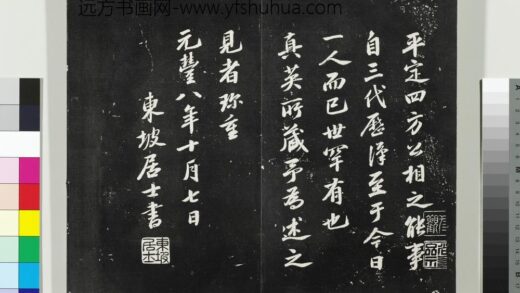 远方书画网-www.yfshuhua.com
平定四方公相之能事
自三代歷漢至于今日
一人而已世罕有也
真英所藏予為述之
見者珎重
元豐八年十月七日
東坡居士書
東坡居士